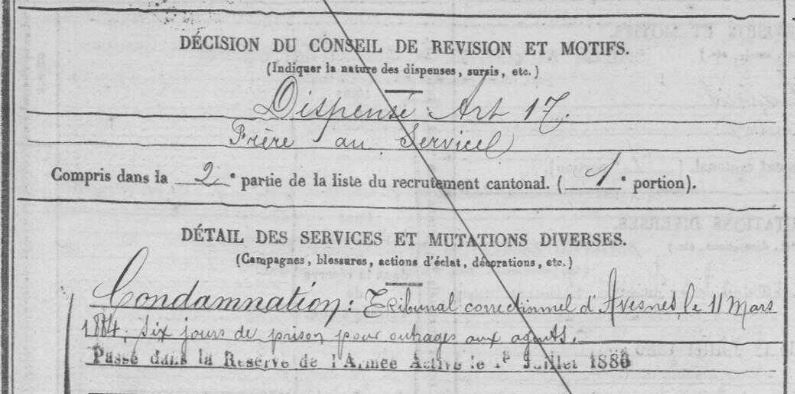 DÉCISION DU CONSEIL DE REVISION ET MOTIFS.
(Indiquer la nature des dispenses, sursis, etc.)
Dispensé Art 17.
Frère au Service
Compris dans la 2e partie de la liste du recrutement cantonal. (1e portion).
DÉTAIL DES SERVICES ET MUTATIONS DIVERSES.
(Campagnes, blessures, actions d'éclat, décorations, etc.)
Condamnation: Tribunal correctionnel d'Avesnes, le 11 Mars
1884, six jours de prison pour outrages aux agents.
Passé dans la Réserve de l'Armée Active le 1er Juillet 1886